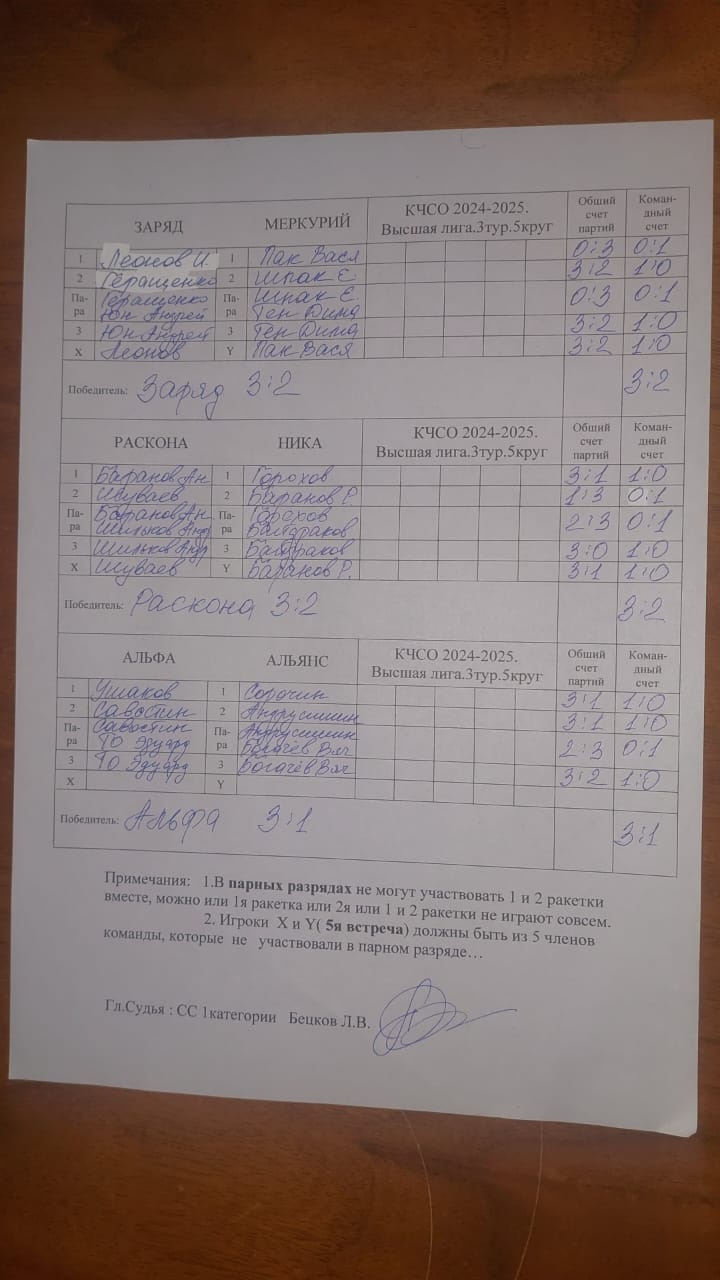 ЗАРЯД МЕРКУРИЙ КЧСО 2024-2025. Высшая лига.3тур.5круг Общий счет партий Коман-дный счет
1 Леонов И. 1 Пак Вася 0:3 0:1
2 Геращенко 2 Шпак Е. 3:2 1:0
Па-ра Геращенко Па-ра Шпак Е. 0:3 0:1
Юн Андрей Ген Дима
3 Юн Андрей 3 Ген Дима 3:2 1:0
X Леонов Y Пак Вася 3:2 1:0
Победитель: Заряд 3:2 3:2
РАСКОНА НИКА КЧСО 2024-2025. Высшая лига.3тур.5круг Общий счет партий Коман-дный счет
1 Баранов Ан 1 Горохов 3:1 1:0
2 Шуваев 2 Баранов Р. 1:3 0:1
Па-ра Баранов Ан. Па-ра Горохов 2:3 0:1
Шильков Андр Байдраков
3 Шильков Андр 3 Байдраков 3:0 1:0
X Шуваев Y Баранов Р. 3:1 1:0
Победитель: Раскона 3:2 3:2
АЛЬФА АЛЬЯНС КЧСО 2024-2025. Высшая лига.3тур.5круг Общий счет партий Коман-дный счет
1 Ушаков 1 Сорочин 3:1 1:0
2 Савостин 2 3:1 1:0
Па-ра Савостин Па-ра 2:3 0:1
ТО Эдуард Богачёв Вяч
3 ТО Эдуард 3 Богачёв Вяч 3:2 1:0
X Y
Победитель: Альфа 3:1 3:1
Примечания: 1.В парных разрядах не могут участвовать 1 и 2 ракетки
вместе, можно или 1я ракетка или 2я или 1 и 2 ракетки не играют совсем.
2. Игроки X и Y( 5я встреча) должны быть из 5 членов
команды, которые не участвовали в парном разряде…
Гл.Судья : СС 1категории Бецков Л.В.